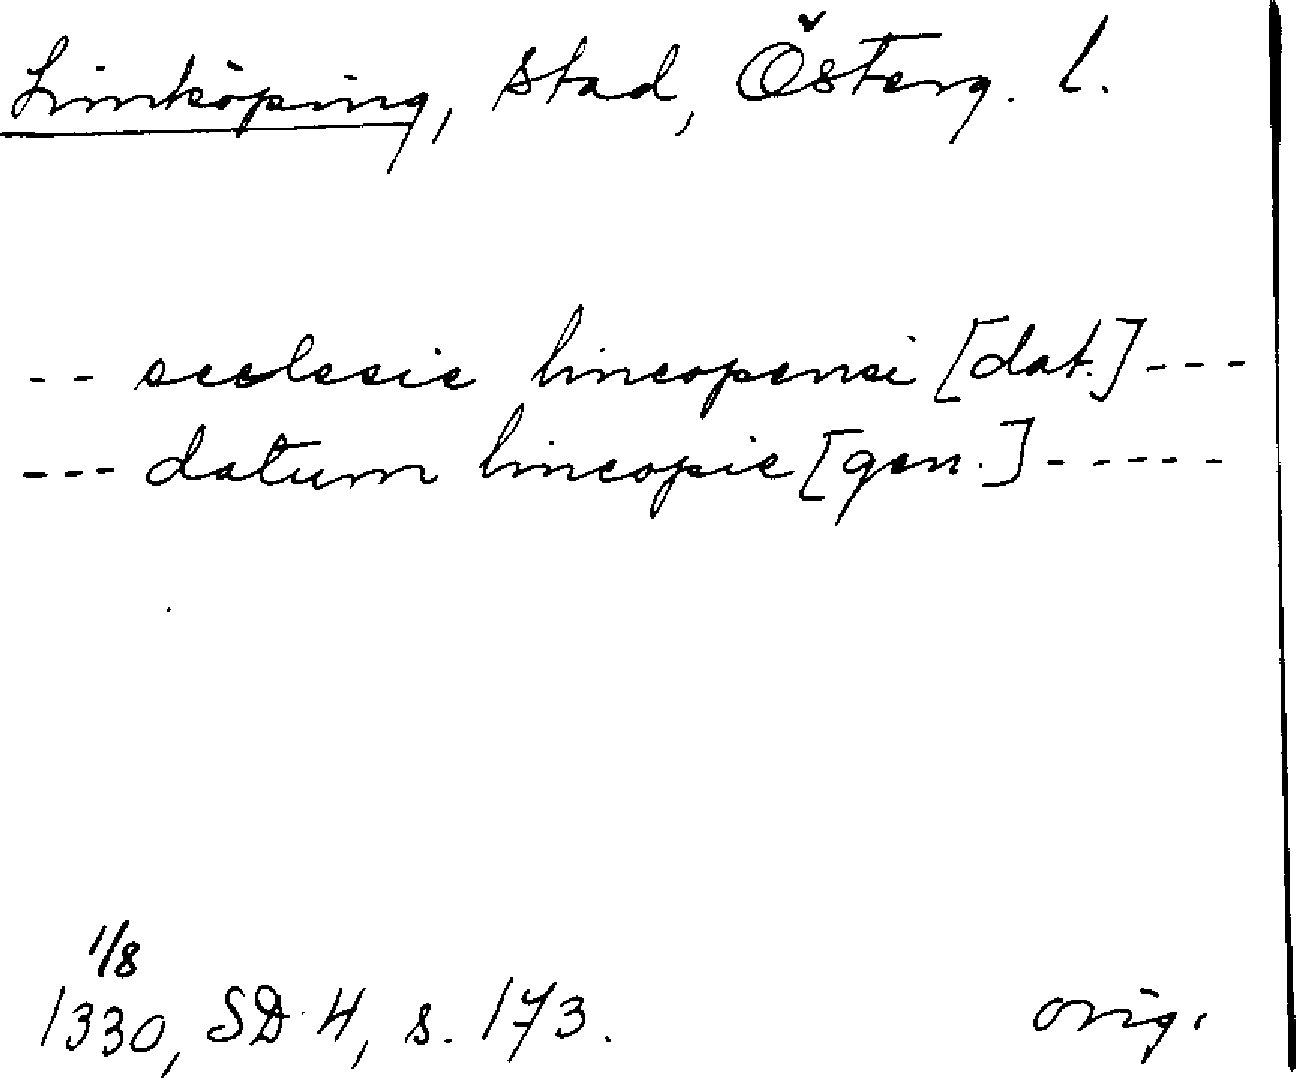 Linköping, stad, Österg. l.
-- ecclesie lincopensi [dat.] ---
--- datum lincopie [gen.] -----
1/8
1330, SD 4, s. 173. orig.